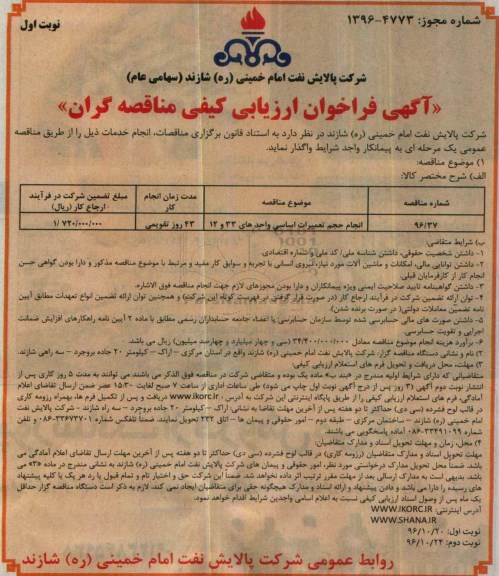 شماره مجوز: ۴۷۷۳-۱۳۹۶
نوبت اول
شرکت پالایش نفت امام خمینی (ره) شازند (سهامی عام)
«آگهی فراخوان ارزیابی کیفی مناقصه گران»
شرکت پالایش نفت امام خمینی (ره) شازند در نظر دارد به استناد قانون برگزاری مناقصات، انجام خدمات ذیل را از طریق مناقصه
عمومی یک مرحله ای به پیمانکار واجد شرایط واگذار نماید.
۱) موضوع مناقصه:
الف) شرح مختصر کالا:
شماره مناقصه موضوع مناقصه مدت زمان انجام کار مبلغ تضمین شرکت در فرآیند ارجاع کار (ریال)
۹۶/۳۷ انجام حجم تعمیرات اساسی واحد های ۳۳ و ۱۲ ۲۳ روز تقویمی ۱/۷۲۰/۰۰۰/۰۰۰
ب) شرایط متقاضی:
۱- داشتن شخصیت حقوقی، داشتن شناسه ملی/ کد ملی و شماره اقتصادی.
۲- داشتن توانایی مالی، امکانات و ماشین آلات مورد نیاز، نیروی انسانی با تجربه و سوابق کار مفید و مرتبط با موضوع مناقصه مذکور و دارا بودن گواهی حسن
انجام کار از کارفرمایان قبلی.
۳- داشتن گواهینامه تایید صلاحیت ایمنی ویژه پیمانکاران و دارا بودن مجوزهای لازم جهت انجام مناقصه فوق الاشاره.
۴- توان ارائه تضمین شرکت در فرآیند ارجاع کار (در صورت قرار گرفتن در فهرست کوتاه این شرکت) و همچنین توان ارائه تضمین انواع تعهدات مطابق آیین
نامه تضمین معاملات دولتی( در صورت برنده شدن).
۵- داشتن صورت های مالی حسابرسی شده توسط سازمان حسابرسی یا اعضاء جامعه حسابداران رسمی مطابق با ماده ۲ آیین نامه راهکارهای افزایش ضمانت
اجرایی و تقویت حسابرسی.
۶- برآورد هزینه انجام موضوع مناقصه معادل ۳۴/۴۰۰/۰۰۰/۰۰۰ (سی و چهار میلیارد و چهارصد میلیون) ریال می باشد.
۲) نام و نشانی دستگاه مناقصه گزار: شرکت پالایش نفت امام خمینی (ره) شازند واقع در استان مرکزی - اراک - کیلومتر ۲۰ جاده بروجرد - سه راهی شازند.
۳) مهلت، محل دریافت و تحویل فرم های استعلام ارزیابی کیفی:
متقاضیانی که دارای شرایط اولیه مندرج در «بند ب» ماده یک بوده و متقاضی شرکت در مناقصه فوق الذکر می باشند می توانند به مدت ۵ روز کاری پس از
انتشار نوبت دوم آگهی (۳ روز پس از درج آگهی نوبت اول چاپ می شود) طی ساعات اداری از ساعت ۷ صبح لغایت ۱۵:۳۰ عصر ضمن ارسال تقاضای اعلام
آمادگی، فرم های استعلام ارزیابی کیفی را از طریق پایگاه اینترنتی این شرکت به آدرس: www.ikorc.ir دریافت و پس از تکمیل فرم ها، بهمراه رزومه کاری
در قالب لوح فشرده (سی دی) حداکثر تا دو هفته پس از آخرین مهلت تقاضا به نشانی: اراک - کیلومتر ۲۰ جاده بروجرد - سه راه شازند - شرکت پالایش نفت
امام خمینی (ره) شازند - ساختمان مرکزی - طبقه دوم - امور حقوقی و پیمان ها - اتاق ۲۳۲ تحویل نمایند. ضمنا تلفکس شماره ۳۳۶۷۳۷۰۱-۰۸۶ و تلفن
شماره ۳۳۴۹۱۰۹۹-۰۸۶ آماده پاسخگویی می باشند.
۴) محل، زمان و مهلت تحویل اسناد و مدارک متقاضیان:
مهلت تحویل اسناد و مدارک متقاضیان (رزومه کاری) در قالب لوح فشرده (سی دی) حداکثر تا دو هفته پس از آخرین مهلت ارسال تقاضای اعلام آمادگی می
باشد. ضمنا محل تحویل مدارک درخواستی مورد نظر، امور حقوقی و پیمان های شرکت پالایش نفت امام خمینی (ره) شازند به نشانی مندرج در ماده «۳» می
باشد. بدیهی است به مدارک ارسالی بعد از مهلت مقرر ترتیب اثر داده نخواهد شد. ضمناً این شرکت حق و اختیار تام و تمام قبول یا رد هر یک یا کلیه پیشنهاد
های رسیده را دارا می باشد و دادن پیشنهاد و ارائه اسناد و مدارک هیچگونه حقی برای متقاضیان ایجاد نمی کند. لازم به ذکر است دستگاه مناقصه گزار حداقل
یک ماه پس از وصول اسناد ارزیابی کیفی نسبت به اعلام اسامی واجدین شرایط اقدام خواهد نمود.
آدرس اینترنتی: WWW.IKORC.IR
WWW.SHANA.IR
نوبت اول: ۹۶/۱۰/۲۰
نوبت دوم: ۹۶/۱۰/۲۴
روابط عمومی شرکت پالایش نفت امام خمینی (ره) شازند